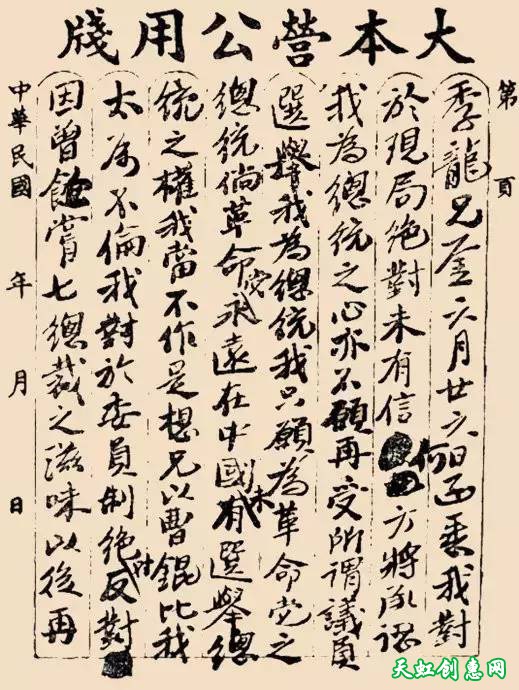 大本營公用牋
第 頁
季龍兄鑒六月廿六日函悉我對
於現局絕對未有信何方將承認
我為總統之心亦不願再受所謂議員
選舉我為總統我只願為革命党之
總統倘革命党永遠在中國未有選舉總
統之權我當不作是想兄以曹錕比我
太為不倫我對於委員制絕対反對
因曾飽嘗七總裁之滋味以後再
中華民國 年 月 日
天虹创意网